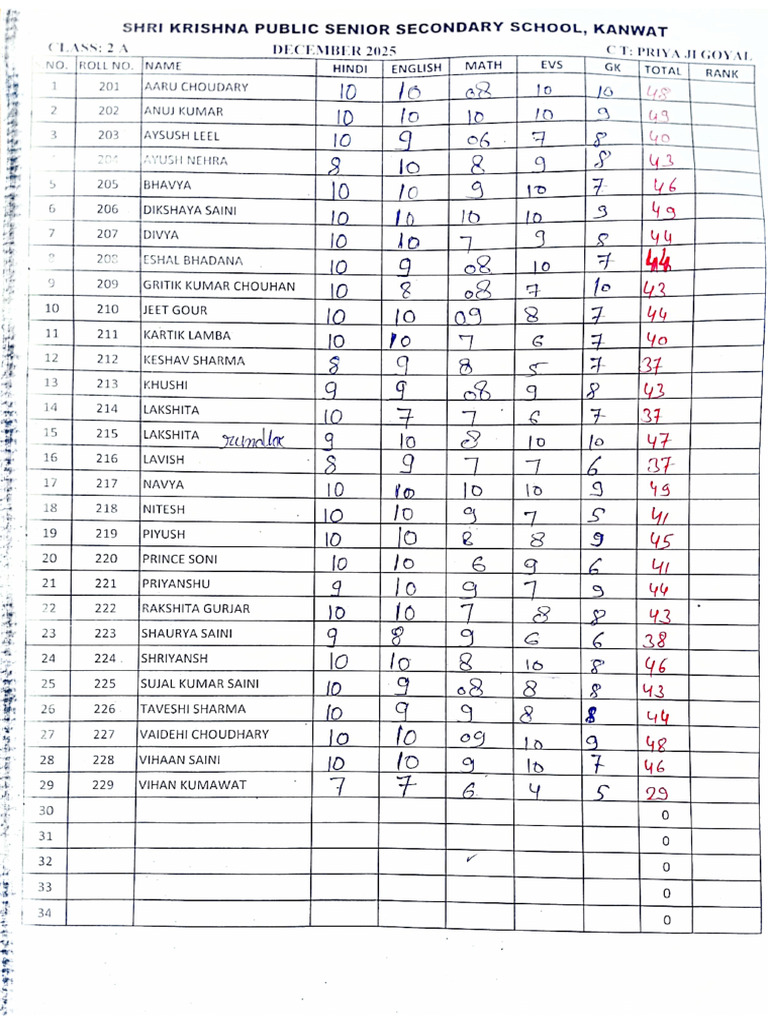 SHRI KRISHNA PUBLIC SENIOR SECONDARY SCHOOL, KANWAT
CLASS: 2 A DECEMBER 2025 C T: PRIYA JI GOYAL
NO. ROLL NO. NAME HINDI ENGLISH MATH EVS GK TOTAL RANK
1 201 AARU CHOUDARY 10 10 08 10 10 48
2 202 ANUJ KUMAR 10 10 10 10 9 49
3 203 AYSUSH LEEL 10 9 06 7 8 40
4 204 AYUSH NEHRA 8 10 8 9 8 43
5 205 BHAVYA 10 10 9 10 7 46
6 206 DIKSHAYA SAINI 10 10 10 10 9 49
7 207 DIVYA 10 10 7 9 8 44
8 208 ESHAL BHADANA 10 9 08 10 7 44
9 209 GRITIK KUMAR CHOUHAN 10 8 08 7 10 43
10 210 JEET GOUR 10 10 09 8 7 44
11 211 KARTIK LAMBA 10 10 7 6 7 40
12 212 KESHAV SHARMA 8 9 8 5 7 37
13 213 KHUSHI 9 9 08 9 8 43
14 214 LAKSHITA 10 7 7 6 7 37
15 215 LAKSHITA 9 10 8 10 10 47
16 216 LAVISH 8 9 7 7 6 37
17 217 NAVYA 10 10 10 10 9 49
18 218 NITESH 10 10 9 7 5 41
19 219 PIYUSH 10 10 8 8 9 45
20 220 PRINCE SONI 10 10 6 9 6 41
21 221 PRIYANSHU 9 10 9 7 9 44
22 222 RAKSHITA GURJAR 10 10 7 8 8 43
23 223 SHAURYA SAINI 9 8 9 6 6 38
24 224 SHRIYANSH 10 10 8 10 8 46
25 225 SUJAL KUMAR SAINI 10 9 08 8 8 43
26 226 TAVESHI SHARMA 10 9 9 8 8 44
27 227 VAIDEHI CHOUDHARY 10 10 09 10 9 48
28 228 VIHAAN SAINI 10 10 9 10 7 46
29 229 VIHAN KUMAWAT 7 7 6 4 5 29
30 0
31 0
32 ✓ 0
33 0
34 0